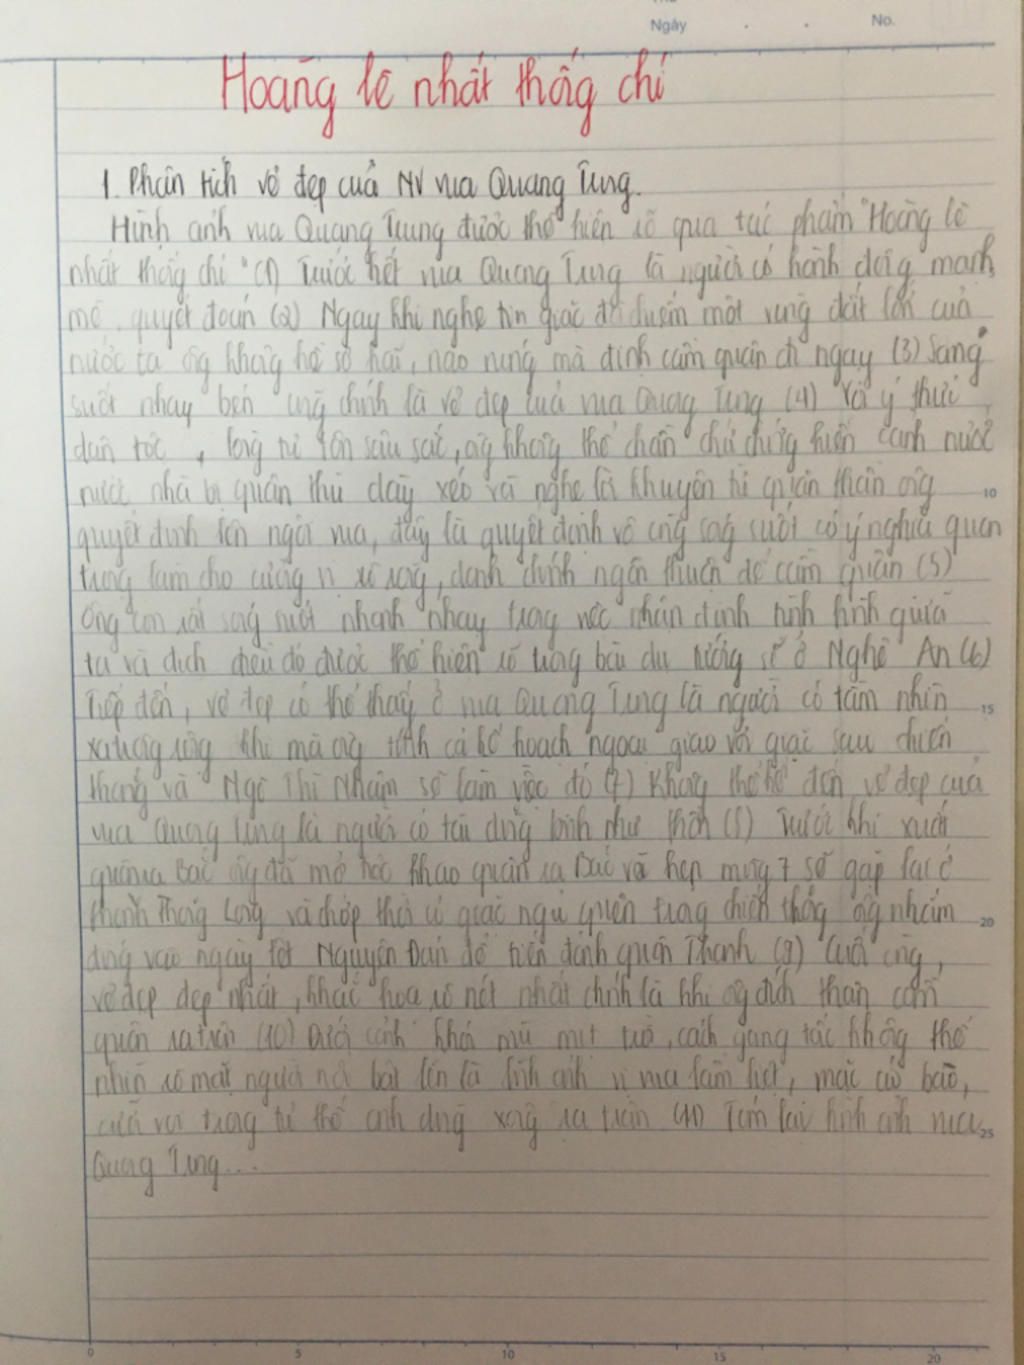 Thứ
Ngày . . No.
Hoàng lê nhất thống chí
1. Phân tích vẻ đẹp của NV vua Quang Trung.
Hình ảnh vua Quang Trung được thể hiện rõ qua tác phẩm "Hoàng lê
nhất thống chí" (1) Trước hết vua Quang Trung là người có hành động mạnh
mẽ, quyết đoán (2) Ngay khi nghe tin giặc đã chiếm một vùng đất lớn của
nước ta ông không hề sợ hãi, nao núng mà định cầm quân đi ngay (3) Sáng
suốt nhạy bén cũng chính là vẻ đẹp của vua Quang Trung (4) Với ý thức
dân tộc, lòng tự tôn sâu sắc, ông không thể chần chừ chứng kiến cảnh nước
nước nhà bị quân thù dày xéo và nghe lời khuyên từ quân thần ông
10
quyết định lên ngôi vua, đây là quyết định vô cùng sáng suốt có ý nghĩa quan
trọng làm cho cương vị rõ ràng, danh chính ngôn thuận để cầm quân (5)
Ông còn rất sáng suốt nhanh nhạy trong việc nhận định tình hình giữa
ta và địch điều đó được thể hiện rõ trong bài dụ tướng sĩ ở Nghệ An (6)
Tiếp đến, vẻ đẹp có thể thấy ở vua Quang Trung là người có tầm nhìn
15
xa trông rộng khi mà ông tính cả kế hoạch ngoại giao với giặc sau chiến
thắng và Ngô Thì Nhậm sẽ làm việc đó (7) Không thể kể đến vẻ đẹp của
vua Quang Trung là người có tài dụng binh như thần (8) Trước khi xuất
quân ra Bắc ông đã mở tiệc khao quân ra Bắc và hẹn mùng 7 sẽ gặp lại ở
thành Thăng Long và chớp thời cơ giặc ngủ quên trong chiến thắng ông nhắm
20
đúng vào ngày tết Nguyên Đán để tiến đánh quân Thanh (9) Cuối cùng,
vẻ đẹp đẹp nhất, khắc họa rõ nét nhất chính là khi ông đích thân cầm
quân ra trận (10) Dưới cảnh khói mù mịt trời, cách gang tấc không thể
nhìn rõ mặt người nổi bật lên là hình ảnh vị vua lẫm liệt, mặc áo bào,
cưỡi voi trong tư thế anh dũng xông ra trận (11) Tóm lại hình ảnh vua
25
Quang Trung...
0 5 10 15 20